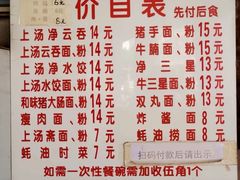 6元
8元
价目表 先付后食
上汤净云吞14元
上汤云吞面、粉14元
上汤净水饺14元
上汤水饺面、粉14元
和味猪大肠面、粉14元
瘦肉面、粉14元
上汤斋面、粉7元
蚝油时菜7元
猪手面、粉15元
牛腩面、粉15元
净三星13元
牛三星面、粉13元
双丸面、粉13元
炸酱面8元
蚝油捞面8元
扫码付款后请出示
如需一次性餐碗需加收伍角1个